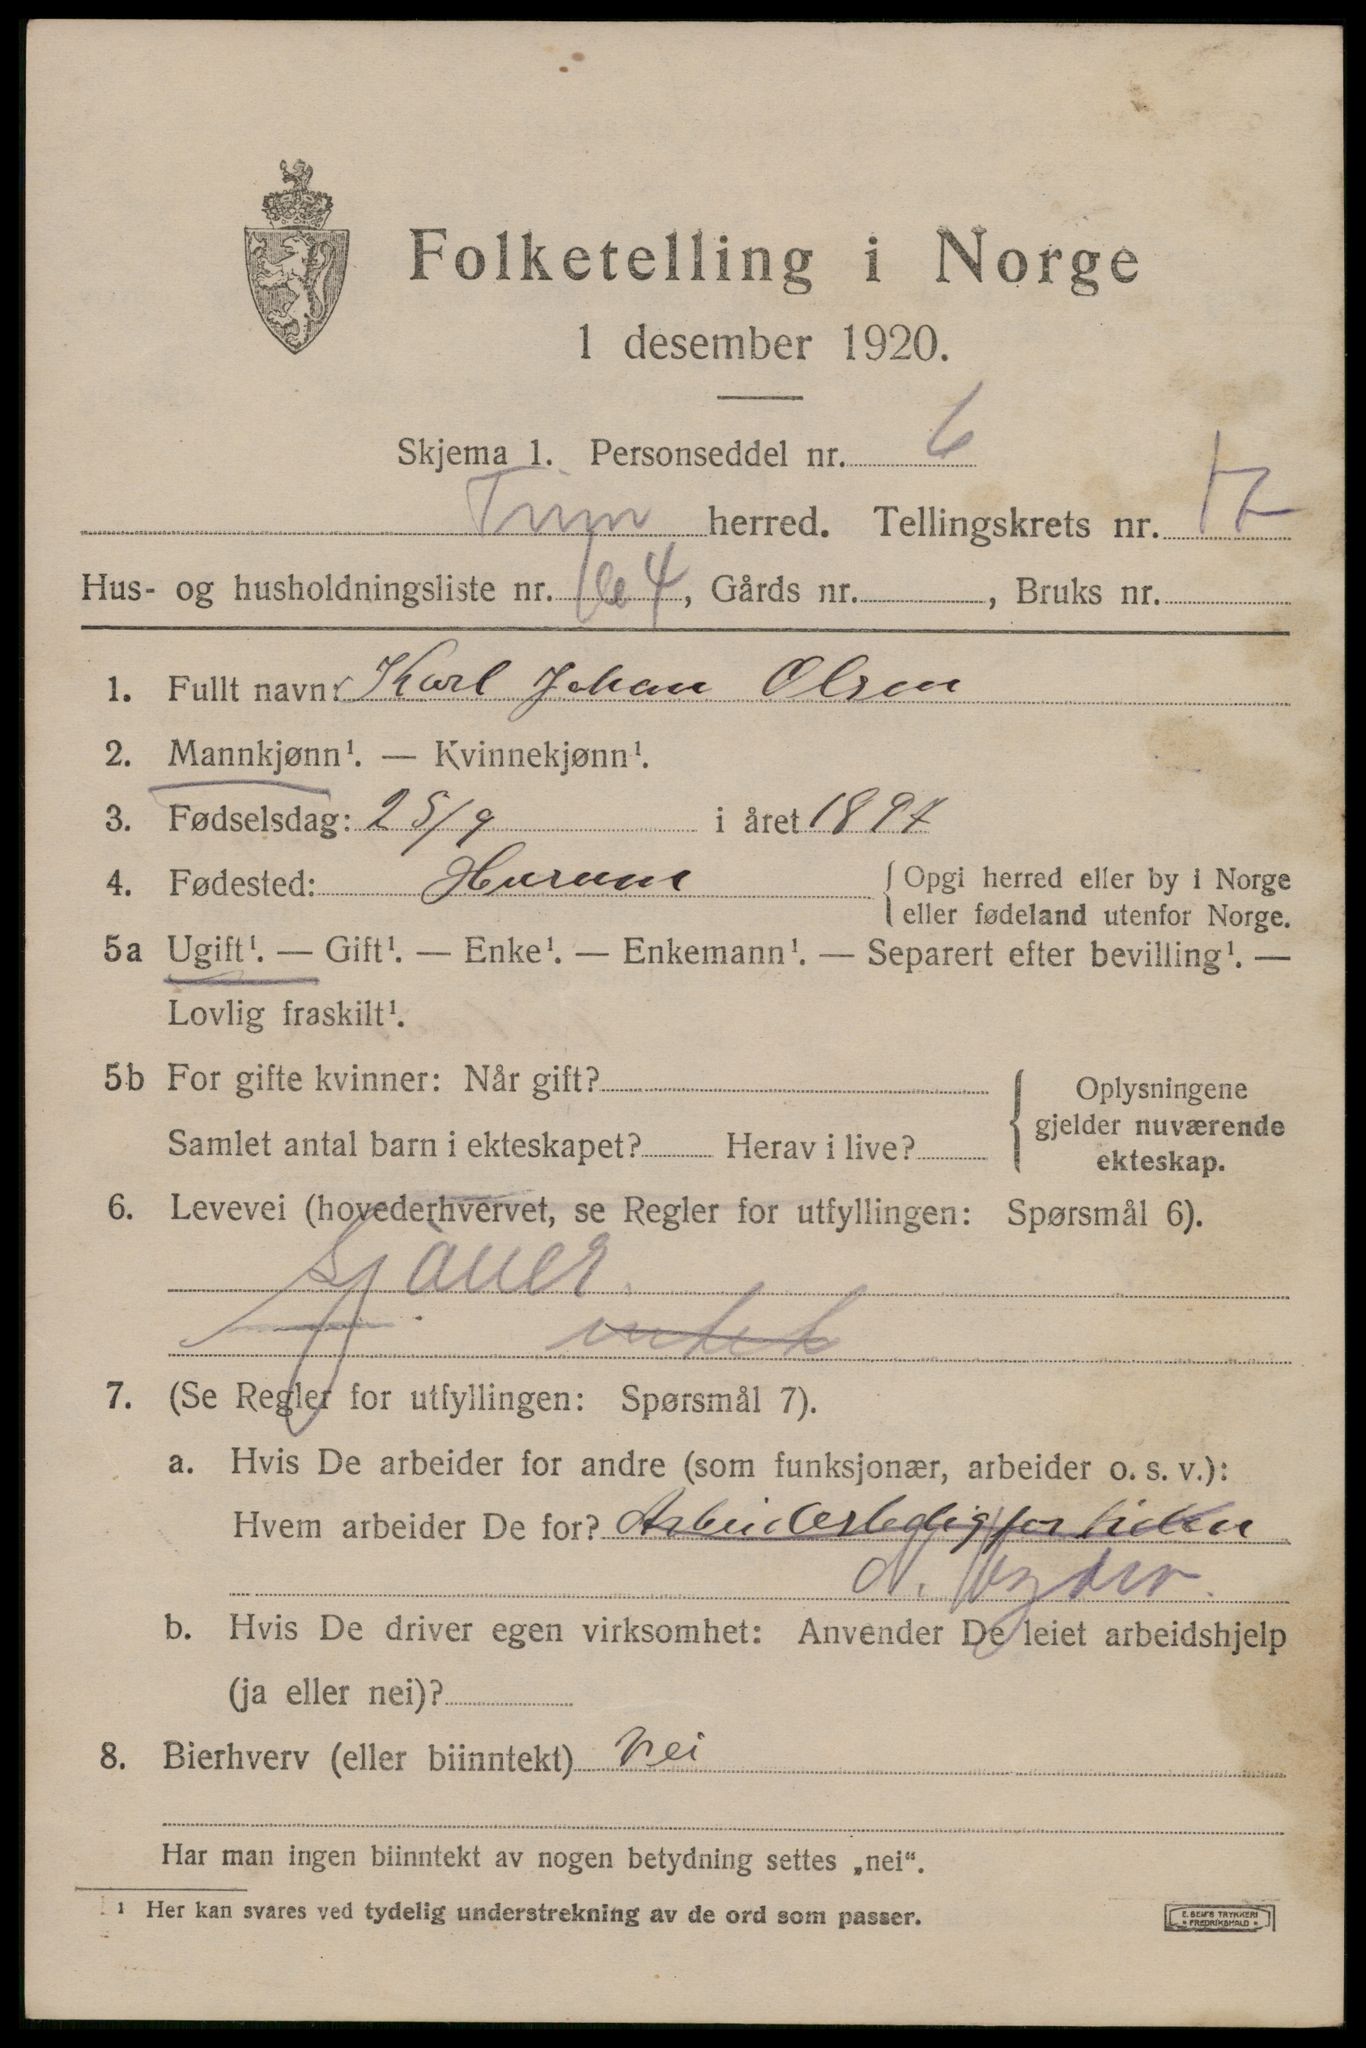 Folketelling i Norge
1 desember 1920.
Skjema 1. Personseddel nr. 6
Tune herred. Tellingskrets nr. 17
Hus- og husholdningsliste nr. 164, Gårds nr. , Bruks nr.
1. Fullt navn: Karl Johan Olsen
2. Mannkjønn¹. — Kvinnekjønn¹.
3. Fødselsdag: 25/9 i året 1897
4. Fødested: Hurum { Opgi herred eller by i Norge
eller fødeland utenfor Norge.
5a Ugift¹. — Gift¹. — Enke¹. — Enkemann¹. — Separert efter bevilling¹. —
Lovlig fraskilt¹.
5b For gifte kvinner: Når gift? { Oplysningene
gjelder nuværende
Samlet antal barn i ekteskapet? Herav i live?
ekteskap.
6. Levevei (hovederhvervet, se Regler for utfyllingen: Spørsmål 6).
Sjauer.
7. (Se Regler for utfyllingen: Spørsmål 7).
a. Hvis De arbeider for andre (som funksjonær, arbeider o. s. v.):
Hvem arbeider De for? Arbeidsledig for tiden
b. Hvis De driver egen virksomhet: Anvender De leiet arbeidshjelp
(ja eller nei)?
8. Bierhverv (eller biinntekt) nei
Har man ingen biinntekt av nogen betydning settes „nei“.
¹ Her kan svares ved tydelig understrekning av de ord som passer.
E. SEM'S TRYKKERI
FREDRIKSHALD